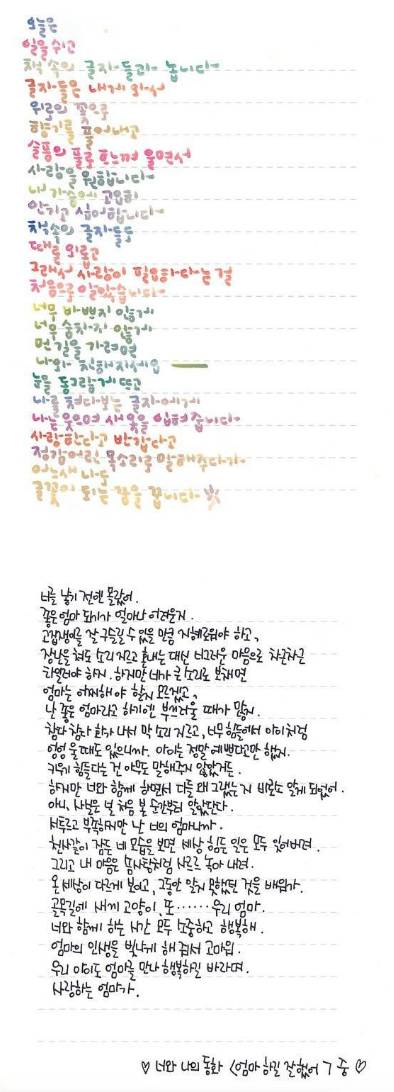 오늘은
일을 쉬고
책 속의 글자들과 놉니다
글자들은 내게 와서
위로의 꽃으로
향기를 풀어내고
슬픔의 풀로 흐느껴 울면서
사랑을 원합니다
내 가슴에 고요히
안기고 싶어합니다
책 속의 글자들도
때론 외롭고
그래서 사랑이 필요하다는 걸
처음으로 알았습니다
너무 바쁘지 않게
너무 숨차지 않게
먼 길을 가려면
나와 친해지세요
눈을 동그랗게 뜨고
나를 쳐다보는 글자에게
나는 웃으며 새 옷을 입혀줍니다
사랑한다고 반갑다고
정감어린 목소리로 말해주다가
어느새 나도
글꽃이 되는 꿈을 꿉니다
너를 낳기 전엔 몰랐어.
좋은 엄마 되기가 얼마나 어려운지.
고집쟁이를 잘 구슬릴 수 있을 만큼 지혜로워야 하고,
장난을 쳐도 소리 지르고 혼내는 대신 너그러운 마음으로 차근차근
타일러야 하지. 하지만 네가 큰 소리로 보채면
엄마는 어찌해야 할지 모르겠고,
난 좋은 엄마라고 하기엔 부끄러울 때가 많지.
참다 참다 화가 나서 막 소리 지르고, 너무 힘들어서 아이처럼
엉엉 울 때도 있으니까. 아이는 정말 예쁘다고만 했지.
키우기 힘들다는 건 아무도 말해주지 않았거든.
하지만 너와 함께 하면서 다들 왜 그랬는지 비로소 알게 되었어.
아니, 사실은 널 처음 본 순간부터 알았단다.
서투르고 부족하지만 난 너의 엄마니까.
천사같이 잠든 네 모습을 보면 세상 힘든 일은 모두 잊어버려.
그리고 내 마음은 솜사탕처럼 사르르 녹아 내려.
온 세상이 다르게 보이고, 그동안 알지 못했던 것을 배워가.
골목길에 새끼 고양이, 또 ······ 우리 엄마.
너와 함께 하는 시간 모두 소중하고 행복해.
엄마의 인생을 빛나게 해 줘서 고마워.
우리 아이도 엄마를 만나 행복하길 바라며.
사랑하는 엄마가.
♡ 너와 나의 동화 <엄마 하길 잘했어> 중 ♡